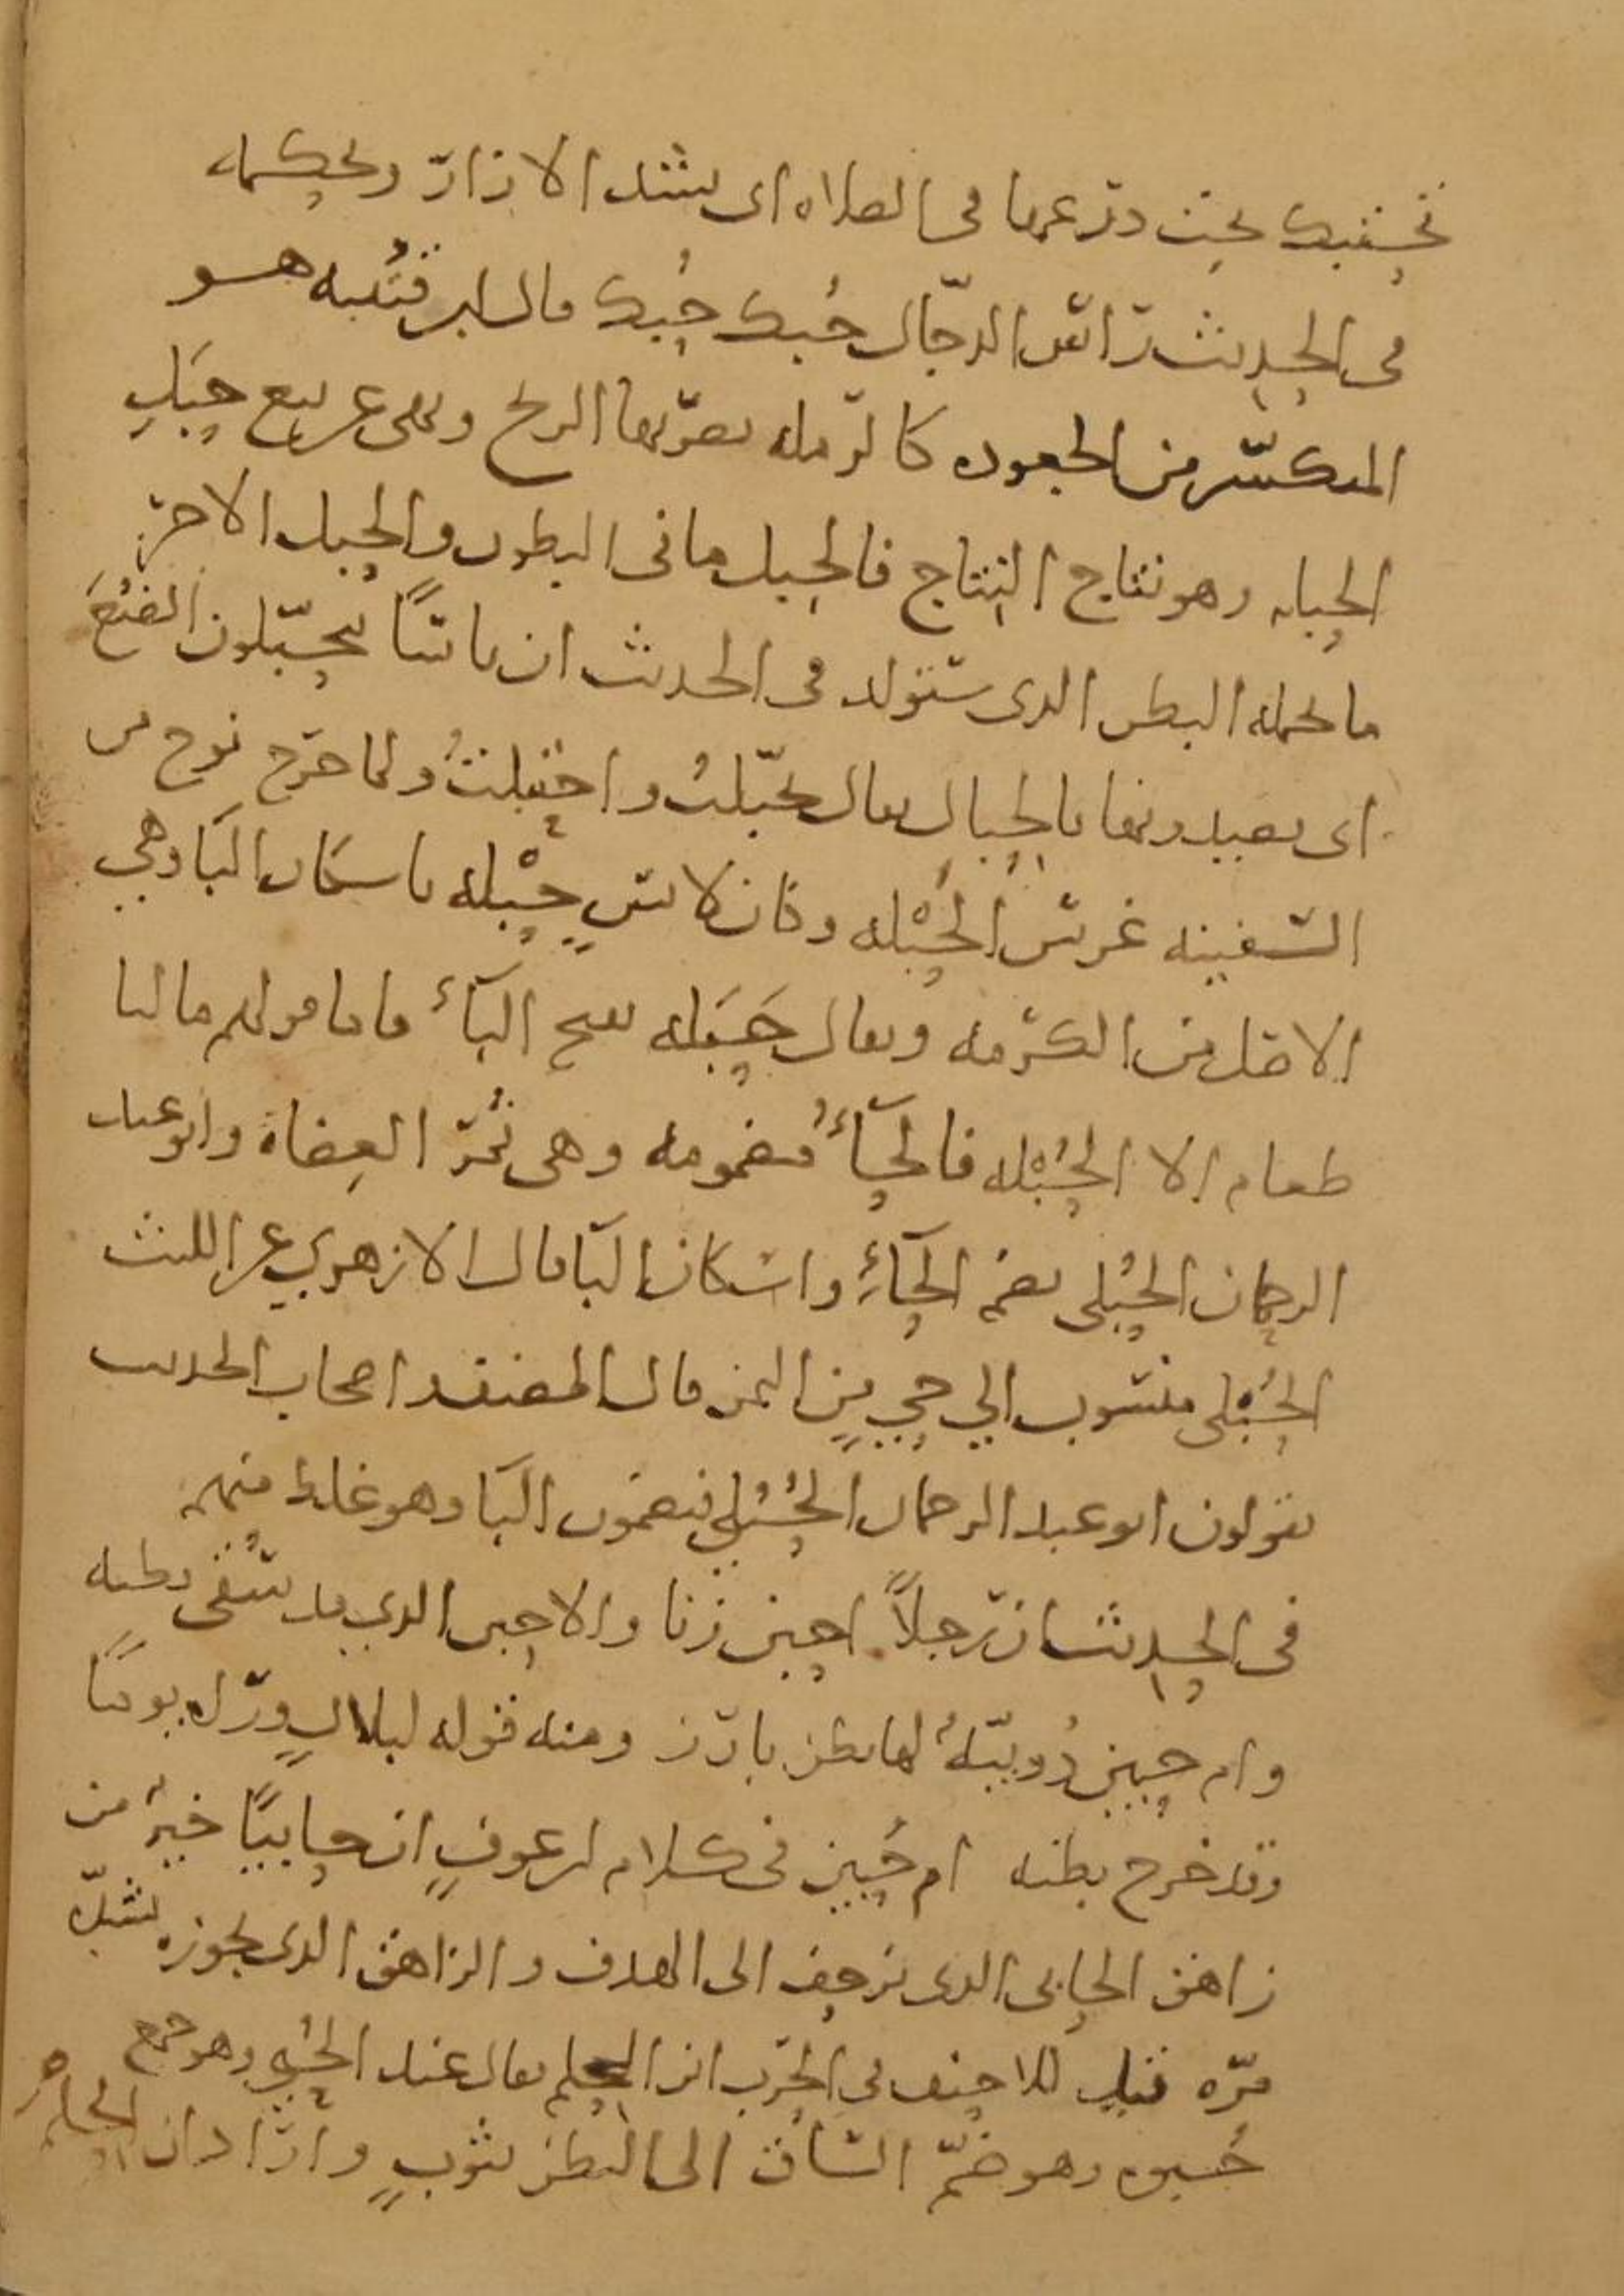 تحتبك تحت درعها في الصلاه اى تشد الازار وتحكمه
في الحديث راس الدجّال حُبك حُبك قال ابن قتيبه هو
المتكسّر من الجعوده كالرّمله تضرّبها الريح ونهى عن بيع حَبَلِ
الحبله وهو نتاج النتاج فالحبل ما في البطون والحبل الاخر
ما تحمله البطن الذي ستولد في الحديث ان ناسًا يتحبّلون الضبُعَ
اى يصيدونها بالحبال يقال تحبّلتُ واحتبلتُ ولما خرج نوح من
السفينه غرس الحَبْله وكان لانس حَبْله باسكان البا وهي
الاصل من الكرمه ويقال حَبَله بفتح البآء فاما قولهم ما لنا
طعام الا الحُبْله فالحآءُ مضمومه وهى ثمر العضاه وابو عبد
الرحمان الحُبْلى بضم الحآءِ واسكان البا قال الازهري عن الليث
الحُبْلى منسوب الي حي من اليمن قال المصنف واصحاب الحديث
يقولون ابو عبد الرحمان الحُبُلي فيضمون البا وهو غلط منهم
في الحديث ان رجلاً احبن زنا والاحبن الذي قد سُقى بطنه
وام حبين دُويبّةٌ لها بطن بارز ومنه قوله لبلالٍ ورآه يومًا
وقد خرج بطنه ام حُبين في كلام ابن عوفٍ ان حابيًا خيرٌ من
زاهق الحابى الذى يزحف الى الهدف والزاهق الذى يجوزه لشدّ
مرّه قيل للاحنف في الحرب اين الحلم فقال عند الحُبى وهو جمع
حُبوه وهو ضمّ الساق الى البطن بثوبٍ واراد ان الحلم